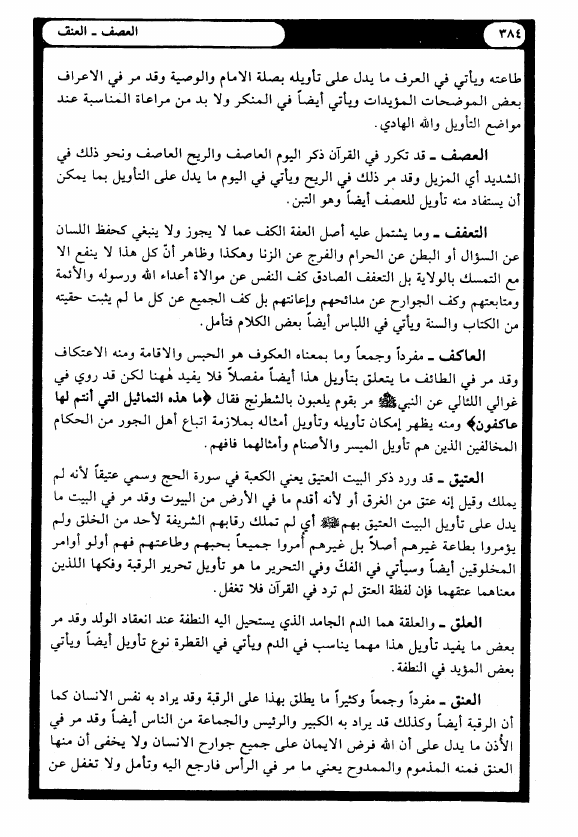 ٣٨٤
العصف ـ العنق
طاعته ويأتي في العرف ما يدل على تأويله بصلة الامام والوصية وقد مر في الاعراف
بعض الموضحات المؤيدات ويأتي أيضاً في المنكر ولا بد من مراعاة المناسبة عند
مواضع التأويل والله الهادي.
العصف ـ قد تكرر في القرآن ذكر اليوم العاصف والريح العاصف ونحو ذلك في
الشديد أي المزيل وقد مر ذلك في الريح ويأتي في اليوم ما يدل على التأويل بما يمكن
أن يستفاد منه تأويل للعصف أيضاً وهو التبن.
التعفف ـ وما يشتمل عليه أصل العفة الكف عما لا يجوز ولا ينبغي كحفظ اللسان
عن السؤال أو البطن عن الحرام والفرج عن الزنا وهكذا وظاهر أنّ كل هذا لا ينفع الا
مع التمسك بالولاية بل التعفف الصادق كف النفس عن موالاة أعداء الله ورسوله والأئمة
ومتابعتهم وكف الجوارح عن مدائحهم وإعانتهم بل كف الجميع عن كل ما لم يثبت حقيته
من الكتاب والسنة ويأتي في اللباس أيضاً بعض الكلام فتأمل.
العاكف ـ مفرداً وجمعاً وما بمعناه العكوف هو الحبس والاقامة ومنه الاعتكاف
وقد مر في الطائف ما يتعلق بتأويل هذا أيضاً مفصلاً فلا يفيد هٰهنا لكن قد روي في
غوالي اللئالي عن النبي ﷺ مر بقوم يلعبون بالشطرنج فقال ﴿ما هذه التماثيل التي أنتم لها
عاكفون﴾ ومنه يظهر إمكان تأويله وتأويل أمثاله بملازمة اتباع أهل الجور من الحكام
المخالفين الذين هم تأويل الميسر والأصنام وأمثالهما فافهم.
العتيق ـ قد ورد ذكر البيت العتيق يعني الكعبة في سورة الحج وسمي عتيقاً لأنه لم
يملك وقيل إنه عتق من الغرق أو لأنه أقدم ما في الأرض من البيوت وقد مر في البيت ما
يدل على تأويل البيت العتيق بهم أي لم تملك رقابهم الشريفة لأحد من الخلق ولم
يؤمروا بطاعة غيرهم أصلاً بل غيرهم أُمروا جميعاً بحبهم وطاعتهم فهم أولو أوامر
المخلوقين أيضاً وسيأتي في الفكّ وفي التحرير ما هو تأويل تحرير الرقبة وفكها اللذين
معناهما عتقهما فإن لفظة العتق لم ترد في القرآن فلا تغفل.
العلق ـ والعلقة هما الدم الجامد الذي يستحيل اليه النطفة عند انعقاد الولد وقد مر
بعض ما يفيد تأويل هذا مهما يناسب في الدم ويأتي في القطرة نوع تأويل أيضاً ويأتي
بعض المؤيد في النطفة.
العنق ـ مفرداً وجمعاً وكثيراً ما يطلق بهذا على الرقبة وقد يراد به نفس الانسان كما
أن الرقبة أيضاً وكذلك قد يراد به الكبير والرئيس والجماعة من الناس أيضاً وقد مر في
الأذن ما يدل على أن الله فرض الايمان على جميع جوارح الانسان ولا يخفى أن منها
العنق فمنه المذموم والممدوح يعني ما مر في الرأس فارجع اليه وتأمل ولا تغفل عن